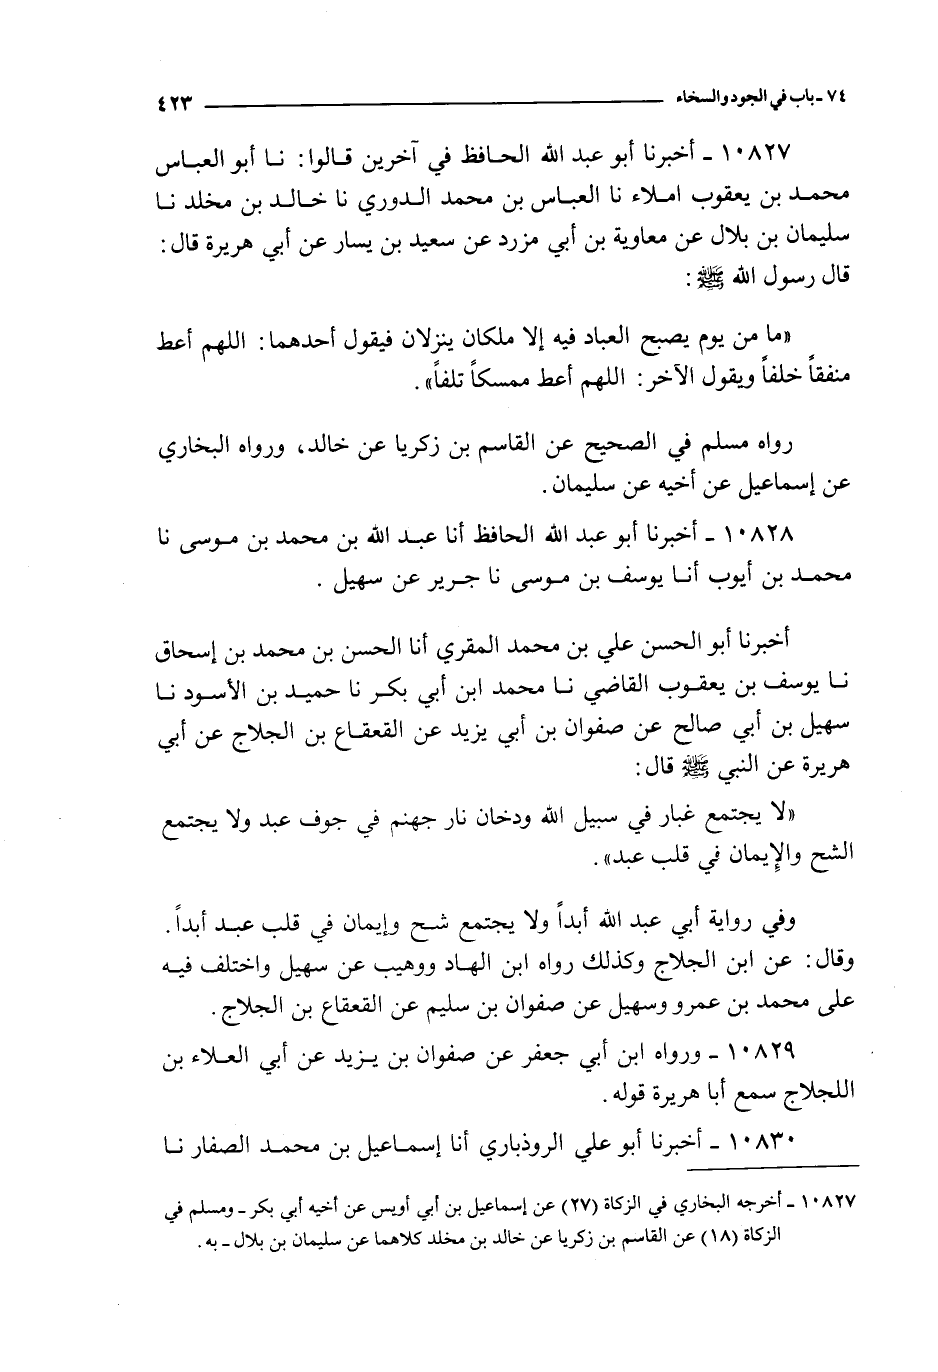 ٧٤ ـ باب في الجود والسخاء ٤٢٣
١٠٨٢٧ ـ أخبرنا أبو عبد الله الحافظ في آخرين قالوا: نا أبو العباس
محمد بن يعقوب املاء نا العباس بن محمد الدوري نا خالد بن مخلد نا
سليمان بن بلال عن معاوية بن أبي مزرد عن سعيد بن يسار عن أبي هريرة قال:
قال رسول الله ﷺ:
«ما من يوم يصبح العباد فيه إلا ملكان ينزلان فيقول أحدهما: اللهم أعط
منفقاً خلفاً ويقول الآخر: اللهم أعط ممسكاً تلفاً».
رواه مسلم في الصحيح عن القاسم بن زكريا عن خالد، ورواه البخاري
عن إسماعيل عن أخيه عن سليمان.
١٠٨٢٨ ـ أخبرنا أبو عبد الله الحافظ أنا عبد الله بن محمد بن موسى نا
محمد بن أيوب أنا يوسف بن موسى نا جرير عن سهيل.
أخبرنا أبو الحسن علي بن محمد المقري أنا الحسن بن محمد بن إسحاق
نا يوسف بن يعقوب القاضي نا محمد ابن أبي بكر نا حميد بن الأسود نا
سهيل بن أبي صالح عن صفوان بن أبي يزيد عن القعقاع بن الجلاج عن أبي
هريرة عن النبي ﷺ قال:
«لا يجتمع غبار في سبيل الله ودخان نار جهنم في جوف عبد ولا يجتمع
الشح والإيمان في قلب عبد».
وفي رواية أبي عبد الله أبداً ولا يجتمع شح وإيمان في قلب عبد أبداً.
وقال: عن ابن الجلاج وكذلك رواه ابن الهاد ووهيب عن سهيل واختلف فيه
على محمد بن عمرو وسهيل عن صفوان بن سليم عن القعقاع بن الجلاج.
١٠٨٢٩ ـ ورواه ابن أبي جعفر عن صفوان بن يزيد عن أبي العلاء بن
اللجلاج سمع أبا هريرة قوله.
١٠٨٣٠ ـ أخبرنا أبو علي الروذباري أنا إسماعيل بن محمد الصفار نا
١٠٨٢٧ ـ أخرجه البخاري في الزكاة (٢٧) عن إسماعيل بن أبي أويس عن أخيه أبي بكر ـ ومسلم في
الزكاة (١٨) عن القاسم بن زكريا عن خالد بن مخلد كلاهما عن سليمان بن بلال ـ به.